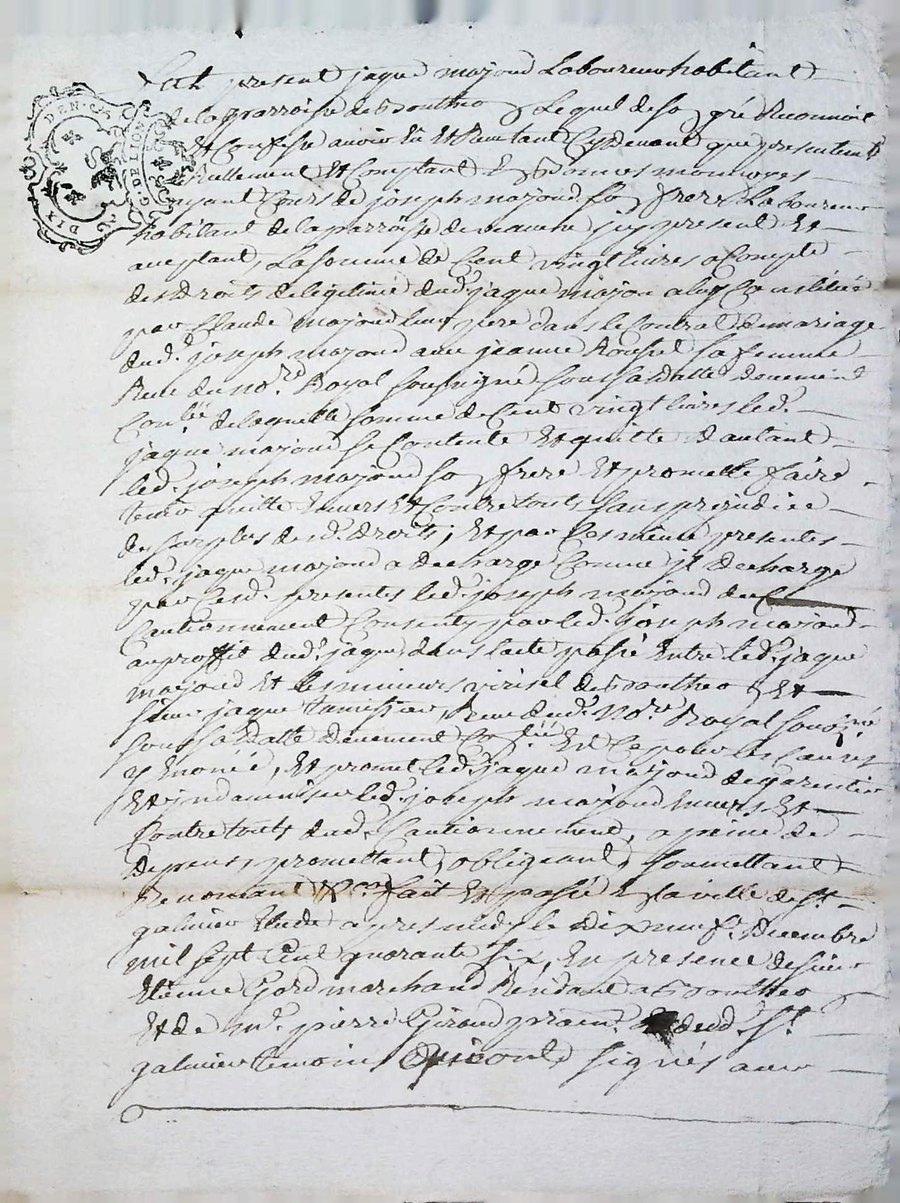 DIX DEN. G. DE LION
Est present jaque majoud Laboureur habitant
de la parroisse de Boutheo Lequel de son gré Reconnoit
Et Confesse avoir Eu Et Receu tant Cydevant que presentemt
Reellement Et Comptant En Bonnes monnoyes
ayant Cours de joseph majoud son frere Laboureur
habitant de la parroisse de jcy present Et
aceptant, La somme de Cent vingt livres a Compte
des Droits de legitime dud. jaque majoud a luy Constitués
par Claude majoud leur pere dans le Contrat de mariage
dud. joseph majoud avec jeanne Roussel sa femme
Receu du nore. Royal soussigné sous sa datte duement
Conlée de laquelle somme de Cent vingt livres led.
jaque majoud se Contente Et quitte d'autant
led. joseph majoud son frere Et promet le faire
tenir quitte Envers Et Contre touts sans prejudice
du surplus desd. droits; Et par Ces même presentes
led. jaque majoud a decharge Comme jl decharge
par Cesd. presentes led. joseph majoud du
Cautionnement Consenty par led. joseph majoud
au proffit dud. jaque dans l'acte passé Entre led. jaque
majoud Et les mineurs virisel de Boutheo Et
sieur jaque Receu dud. Nore. Royal sousigné
sous sa datte duement Conlée Et Ce pour les Causes
y Enoncé, Et promet led. jaque majoud de garentir
Et jndamniser led. joseph majoud Envers Et
Contre touts dud. Cautionnement, a peine de
depens, promettant, obligeant, soumettant
Renonçant &c Fait Et passé En la ville de St.
galmier Etude apres midy le Dix neuf. Decembre
mil sept Cent quarante six, En presence de sieur
Etienne marchand Residant a Boutheo
Et de Me. pierre Giraud prat. dud. St.
galmier temoins Qui ont signés avec